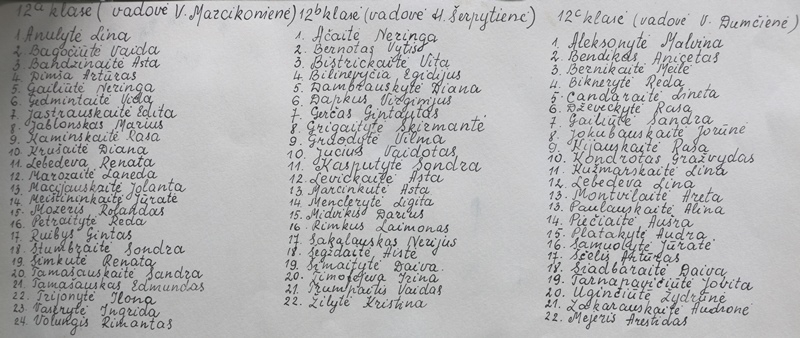 12ᵃ klasė ( vadovė V. Marcikonienė)
1. Anulytė Lina
2. Bagočiūtė Vaida
3. Bandzinaitė Asta
4. Dimša Artūras
5. Gailiūtė Neringa
6. Gedmintaitė Vida
7. Jastrauskaitė Edita
8. Jablonskas Marius
9. Kaminskaitė Rasa
10. Krušaitė Diana
11. Lebedeva Renata
12. Marozaitė Laneda
13. Macijauskaitė Jolanta
14. Meištininkaitė Jūratė
15. Mozeris Rolandas
16. Petraitytė Reda
17. Ruibys Gintas
18. Stumbraitė Sondra
19. Šimkutė Renata
20. Tamašauskaitė Sandra
21. Tamašauskas Edmundas
22. Trijonytė Ilona
23. Ingrida
24. Volungis Rimantas
12ᵇ klasė (vadovė H. Šerpytienė)
1. Ačaitė Neringa
2. Bernotas Vytis
3. Bistrickaitė Vita
4. Egidijus
5. Dambrauskytė Diana
6. Dapkus Virginijus
7. Gercas Gintautas
8. Grigaitytė Skirmantė
9. Grdodytė Vilma
10. Jucius Vaidotas
11. Kasputytė Sondra
12. Levickaitė Asta
13. Marcinkutė Asta
14. Menclerytė Ligita
15. Midvikis Darius
16. Rimkus Laimonas
17. Sakalauskas Nerijus
18. Segždaitė Aistė
19. Šimaitytė Daiva
20. Timofejeva Irina
21. Trumpaitis Vaidas
22. Žilytė Kristina
12ᶜ klasė (vadovė V. Dumčienė)
1. Aleksonytė Malvina
2. Bendikas Anicetas
3. Bernikaitė Meilė
4. Biknerytė Reda
5. Candaraitė Lineta
6. Dževeckytė Rasa
7. Gailiūtė Sandra
8. Jokubauskaitė Jorūnė
9. Nijauskaitė Rasa
10. Kondrotas Gražvydas
11. Kužmarskaitė Lina
12. Lebedeva Lina
13. Montvilaitė Areta
13. Paulauskaitė Alina
14. Piečiaitė Aušra
15. Platakytė Audra
16. Samuolytė Jūratė
17. Ščelis Artūras
18. Šiadbaraitė Daiva
19. Tarnapavičiūtė Jovita
20. Uginčiūtė Žydrūnė
21. Zakarauskaitė Audronė
22. Mejeris Arestidas